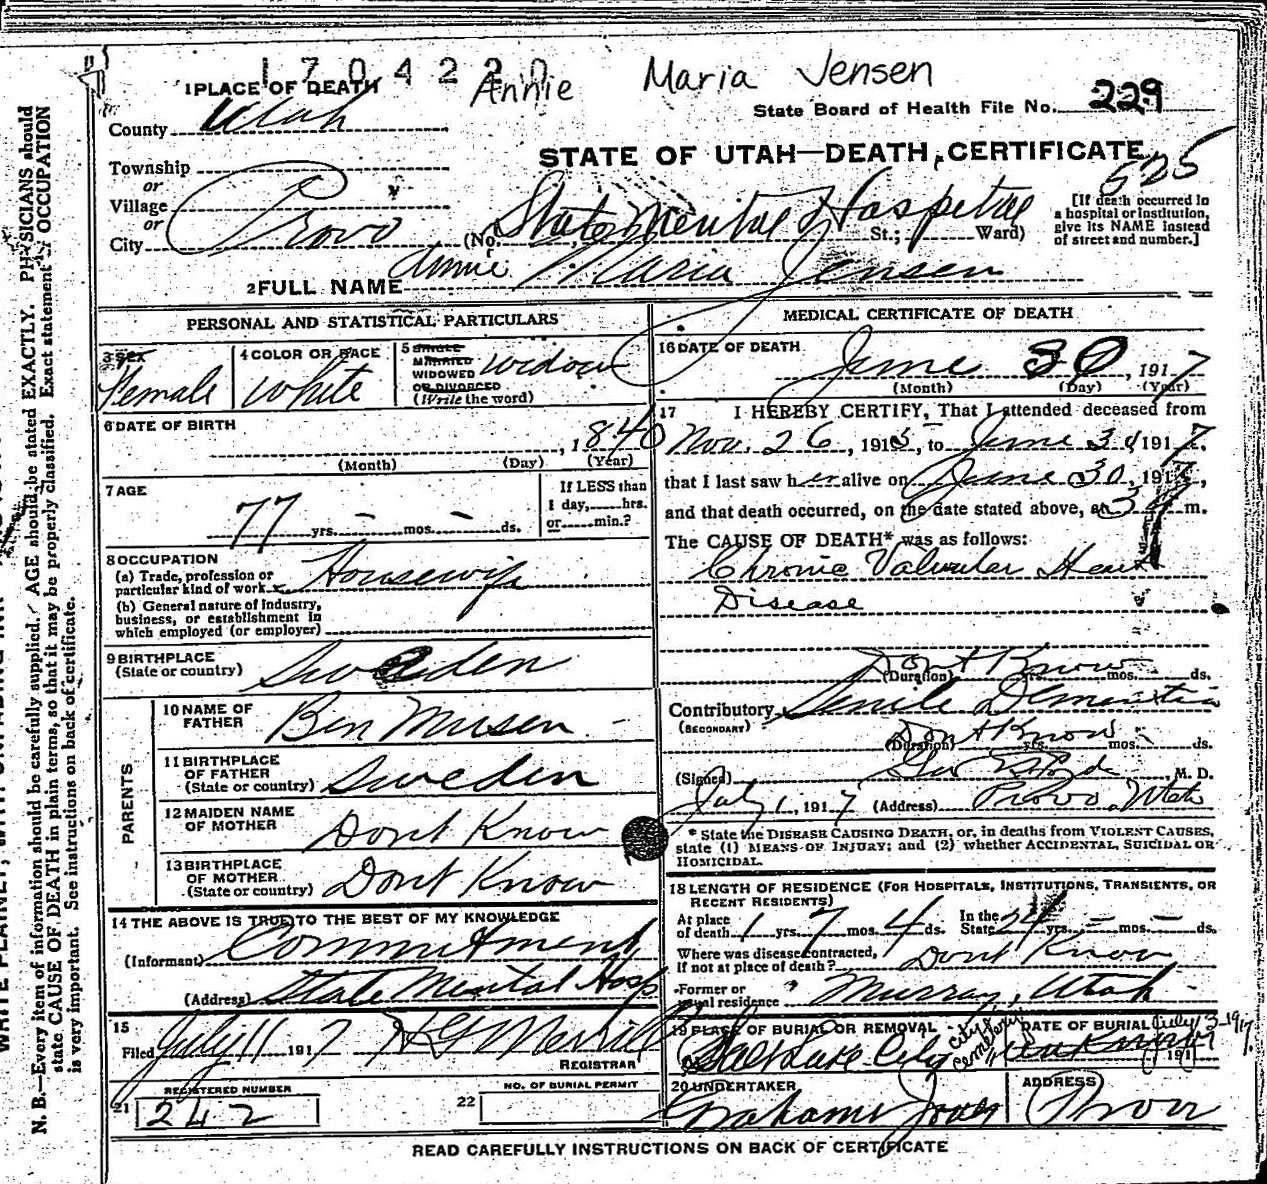 1704220
Annie Maria Jensen
1 PLACE OF DEATH
State Board of Health File No. 229
County Utah
STATE OF UTAH—DEATH CERTIFICATE
525
Township
or
Village
or
City Provo (No. State Mental Hospital St.; Ward)
[If death occurred in a hospital or institution, give its NAME instead of street and number.]
2 FULL NAME Annie Maria Jensen
PERSONAL AND STATISTICAL PARTICULARS
3 SEX Female
4 COLOR OR RACE White
5 SINGLE
MARRIED
WIDOWED
OR DIVORCED
(Write the word) widow
6 DATE OF BIRTH
, 1840
(Month) (Day) (Year)
7 AGE
77 yrs. - mos. - ds.
If LESS than
1 day, hrs.
or min.?
8 OCCUPATION
(a) Trade, profession or
particular kind of work Housewife
(b) General nature of industry,
business, or establishment in
which employed (or employer)
9 BIRTHPLACE
(State or country) Sweden
PARENTS
10 NAME OF
FATHER Ben Musen -
11 BIRTHPLACE
OF FATHER
(State or country) Sweden
12 MAIDEN NAME
OF MOTHER Dont Know
13 BIRTHPLACE
OF MOTHER
(State or country) Dont Know
14 THE ABOVE IS TRUE TO THE BEST OF MY KNOWLEDGE
(Informant) Commitment
(Address) State Mental Hosp
15
Filed July 11 1917
REGISTRAR
REGISTERED NUMBER
21 242
NO. OF BURIAL PERMIT
22
MEDICAL CERTIFICATE OF DEATH
16 DATE OF DEATH
June 30, 1917
(Month) (Day) (Year)
17 I HEREBY CERTIFY, That I attended deceased from
Nov. 26, 1915, to June 30 1917.
that I last saw her alive on June 30, 1917,
and that death occurred, on the date stated above, at 3 m.
The CAUSE OF DEATH* was as follows:
Chronic Valvular Heart
Disease
Dont Know
(Duration) yrs. mos. ds.
Contributory Senile Dementia
(SECONDARY)
Dont Know
(Duration) yrs. mos. ds.
(Signed) M. D.
July 1, 1917 (Address) Provo, Utah
* State the DISEASE CAUSING DEATH, or, in deaths from VIOLENT CAUSES,
state (1) MEANS OF INJURY; and (2) whether ACCIDENTAL, SUICIDAL OR
HOMICIDAL.
18 LENGTH OF RESIDENCE (FOR HOSPITALS, INSTITUTIONS, TRANSIENTS, OR
RECENT RESIDENTS)
At place
of death 1 yrs. 7 mos. 4 ds. In the
State 24 yrs. - mos. - ds.
Where was disease contracted,
if not at place of death? Dont Know
Former or
usual residence Murray, Utah -
19 PLACE OF BURIAL OR REMOVAL
Salt Lake City
city cemetery
DATE OF BURIAL July 13-1917
191
20 UNDERTAKER
ADDRESS
Provo
READ CAREFULLY INSTRUCTIONS ON BACK OF CERTIFICATE
N. B.—Every item of information should be carefully supplied. AGE should be stated EXACTLY. PHYSICIANS should
state CAUSE OF DEATH in plain terms, so that it may be properly classified. Exact statement of OCCUPATION
is very important. See instructions on back of certificate.